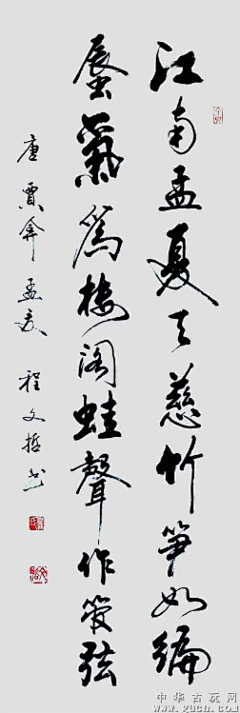 江南孟夏天慈竹笋如編
蜃氣爲樓閣蛙聲作管弦
唐 賈弇 孟夏 程文哲书
中华古玩网
www.gucn.com